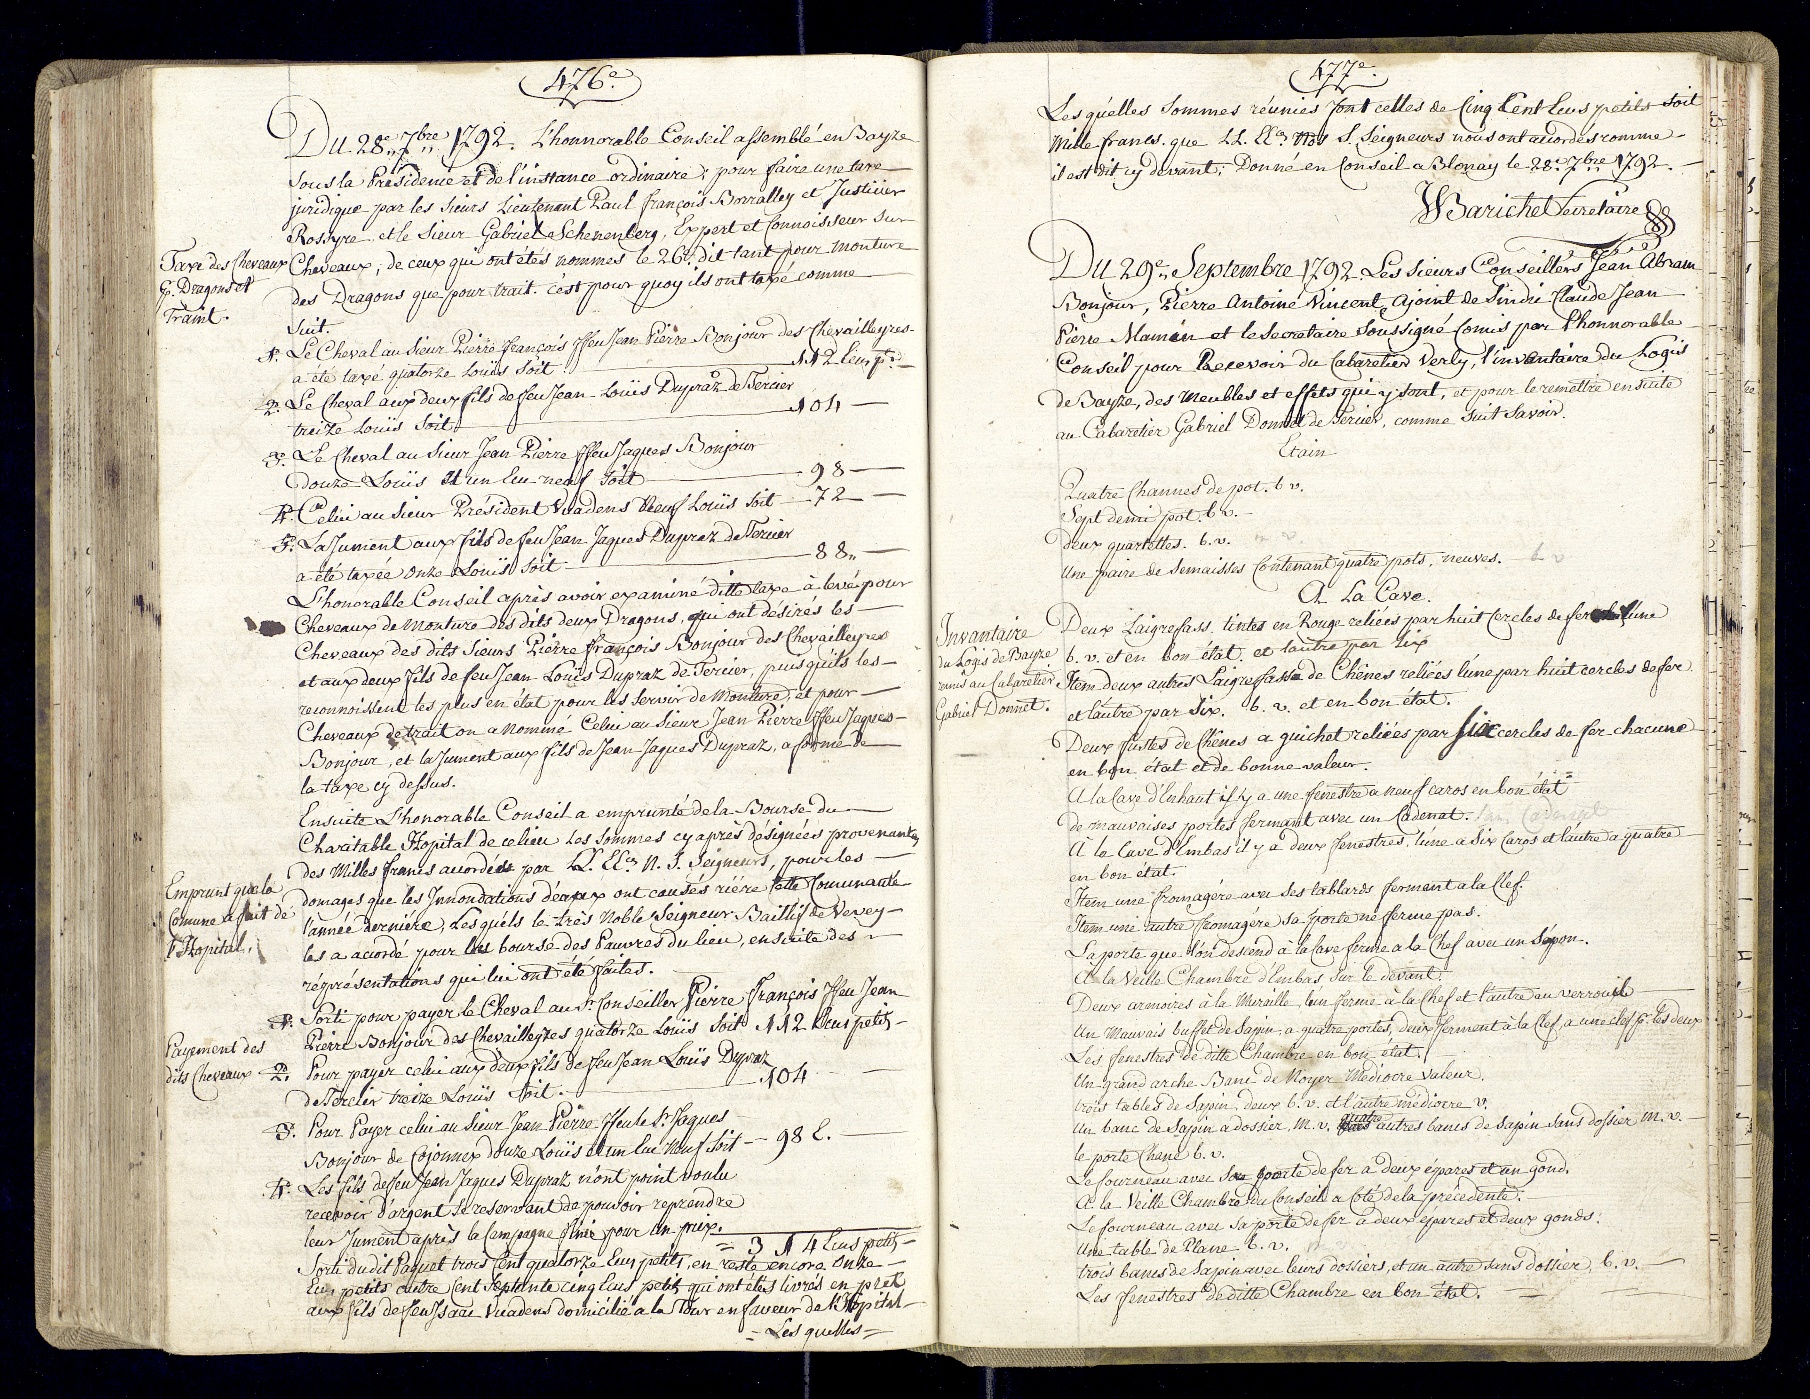 476e.
Du 28e 7bre 1792. L'honnorable Conseil assemblé en Bayze
sous la Présidence et de l'instance ordinaire; pour faire une taxe
juridique par les Sieurs Lieutenant Paul françois Borralley et Justicier
Rossyre et le Sieur Gabriel Schenenberg, Expert et Connoisseur sur
Taxe des Cheveaux
pr. Dragons et
Traint.
Cheveaux, de ceux qui ont étés nommés le 26e. dit tant pour monture
des Dragons que pour trait. c'est pour quoy ils ont taxé comme
suit.
1o. Le Cheval au Sieur Pierre François ffeu Jean Pierre Bonjour des Chevailleyres
a été taxé quatorze Louïs soit 112 Ecus pts.
2o. Le Cheval aux deux fils de feu Jean Louïs Dupraz de Tercier
treize Louïs soit 104
3o. Le Cheval au Sieur Jean Pierre ffeu Jaques Bonjour
douze Louïs et un Ecu neuf soit 98
4o. Celui au Sieur Président Vuadens Neuf Louïs soit 72
5o. La Jument aux fils de feu Jean Jaques Dupraz de Tercier
a été taxée Onze Louïs soit 88
L'honorable Conseil après avoir examiné ditte taxe à levé pour
Cheveaux de Monture des dits deux Dragons, qui ont désirés les
Cheveaux des dits Sieurs Pierre françois Bonjour des Chevailleyres
et aux deux fils de feu Jean Louïs Dupraz de Tercier, puisqu'ils les
reconnoissent les plus en état pour les servir de Monture, et pour
Cheveaux de trait on a Nommé Celui au Sieur Jean Pierre ffeu Jaques
Bonjour, et la Jument aux fils de Jean Jaques Dupraz, a forme de
la taxe cy dessus.
Ensuite L'honorable Conseil a emprunté de la Bourse du
Charitable Hopital de ce lieu les sommes cy après désignées provenantes
des Milles francs accordées par LL. EEces N. S. Seigneurs, pour les
Emprunt que la
Comune a fait de
l'Hopital.
domages que les Innondations d'eaux ont causés riére cette Comunauté
l'année derniére, Lesquels le très Noble Seigneur Baillif de Vevey
les a accordé pour la bourse des Pauvres du lieu, ensuite des
réprésentations qui lui ont été faites.
1o. Sorti pour payer le Cheval au Sr. Conseiller Pierre François ffeu Jean
Pierre Bonjour des Chevailleyres quatorze Louïs soit 112 Ecus petits
Payement des
dits Cheveaux
2o. Pour payer celui aux deux fils de feu Jean Louïs Dupraz
de Tercier treize Louïs soit. 104
3o. Pour Payer celui au Sieur Jean Pierre ffeu le Sr. Jaques
Bonjour de Cojonnex douze Louïs et un Ecu Neuf soit 98 E.
4o. Les fils de feu Jean Jaques Dupraz n'ont point voulu
recevoir d'argent se reservant de pouvoir reprendre
leur Jument après la Campagne finie pour un prix.
= 314 Ecus petits =
Sorti du dit Paquet trois Cent quatorze Ecus petits, en reste encore Onze
Ecus petits outre Cent Septante cinq Ecus petits qui ont étés livrés en prêt
aux fils de feu Isaac Vuadens domicilié a la Tour en faveur de l'Hopital
= Les quelles =
477e.
Les quelles Sommes réunies sont celles de Cinq Cent Ecus petits soit
Mille francs. que LL. EEces nos S. Seigneurs nous ont acordés comme
il est dit cy devant; Donné en Conseil a Blonay le 28e. 7bre 1792.
Barichet Secretaire
Du 29e. Septembre 1792. Les Sieurs Conseillérs Jean Abram
Bonjour, Pierre Antoine Vincent, ajoint de Sindic Claude Jean
Pierre Mamin et le Secretaire soussigné Comis par l'honnorable
Conseil pour Recevoir du Cabaretier Verly, l'inventaire du Logis
de Bayze, des Meubles et effets qui y sont, et pour le remettre ensuite
au Cabaretier Gabriel Donnet de Tercier, comme suit Savoir.
Etain
Quatre Channes de pot. b v.
Sept demi pot. b. v.
deux quartettes. b. v.
Une paire de Semaisses Contenant quatre pots, neuves. b v
A La Cave.
Invantaire
du Logis de Bayze
remis au Cabaretier
Gabriel Donnet.
Deux Laigrefass. tintes en Rouge reliées par huit Cercles de fer l'une
b. v. et en bon état. et l'autre par Six
Item deux autres Laigrefass de Chênes reliées l'une par huit cercles de fer
et l'autre par Six. b. v. et en bon état.
Deux fustes de Chênes a guichet reliées par Six cercles de fer chacune
en bon état et de bonne valeur.
A la Cave d'Enhaut il y a une fenestre a neuf caros en bon état
de mauvaises portes fermant avec un Cadenat.
A la Cave d'Embas il y a deux fenestres, l'une a Six Caros et l'autre a quatre
en bon état.
Item une fromagére avec ses tablards ferment a la Clef.
Item une autre fromagére sa porte ne ferme pas.
La porte que l'on descend à la Cave ferme a la Chef avec un Sépon.
A la Veille Chambre d'Embas, sur le devant.
Deux armoires à la Muraille, l'un ferme à la Chef et l'autre au verrouil
Un Mauvais buffet de Sapin, a quatre portes, deux ferment à la Clef, a une clef pr. les deux
Les fenestres de ditte Chambre en bon état.
Un grand arche Banc de Noyer Médiocre Valeur.
trois tables de Sapin, deux b. v. et l'autre médiocre v.
Un banc de Sapin a dossier, M. v. quatre autres bancs de sapin sans dossier M. v.
le porte Chane b. v.
Le fourneau avec sa porte de fer a deux épares et un gond.
A la Veille Chambre du Conseil a Coté de la précédente.
Le fourneau avec sa porte de fer a deux épares et deux gonds.
Une table de Plane b. v.
trois bancs de Sapin avec leurs dossiers, et un autre sans dossier, b. v.
Les fenestres de ditte Chambre en bon état.